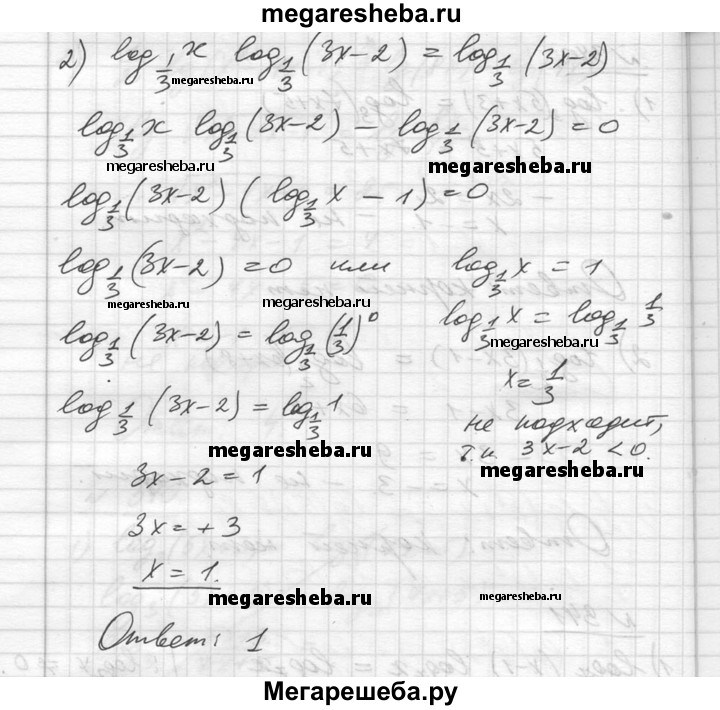 megaresheba.ru
2) log 1/3 x log 1/3 (3x-2) = log 1/3 (3x-2)
megaresheba.ru
log 1/3 x log 1/3 (3x-2) - log 1/3 (3x-2) = 0
megaresheba.ru megaresheba.ru
log 1/3 (3x-2) (log 1/3 x - 1) = 0
log 1/3 (3x-2) = 0 или log 1/3 x = 1
megaresheba.ru megaresheba.ru
log 1/3 (3x-2) = log 1/3 (1/3)^0 log 1/3 x = log 1/3 1/3
megaresheba.ru
log 1/3 (3x-2) = log 1/3 1 x = 1/3
не подходит,
megaresheba.ru т.к. 3x-2 < 0.
3x-2 = 1 megaresheba.ru
3x = + 3
x = 1.
megaresheba.ru megaresheba.ru
Ответ: 1
Мегарешеба.ру